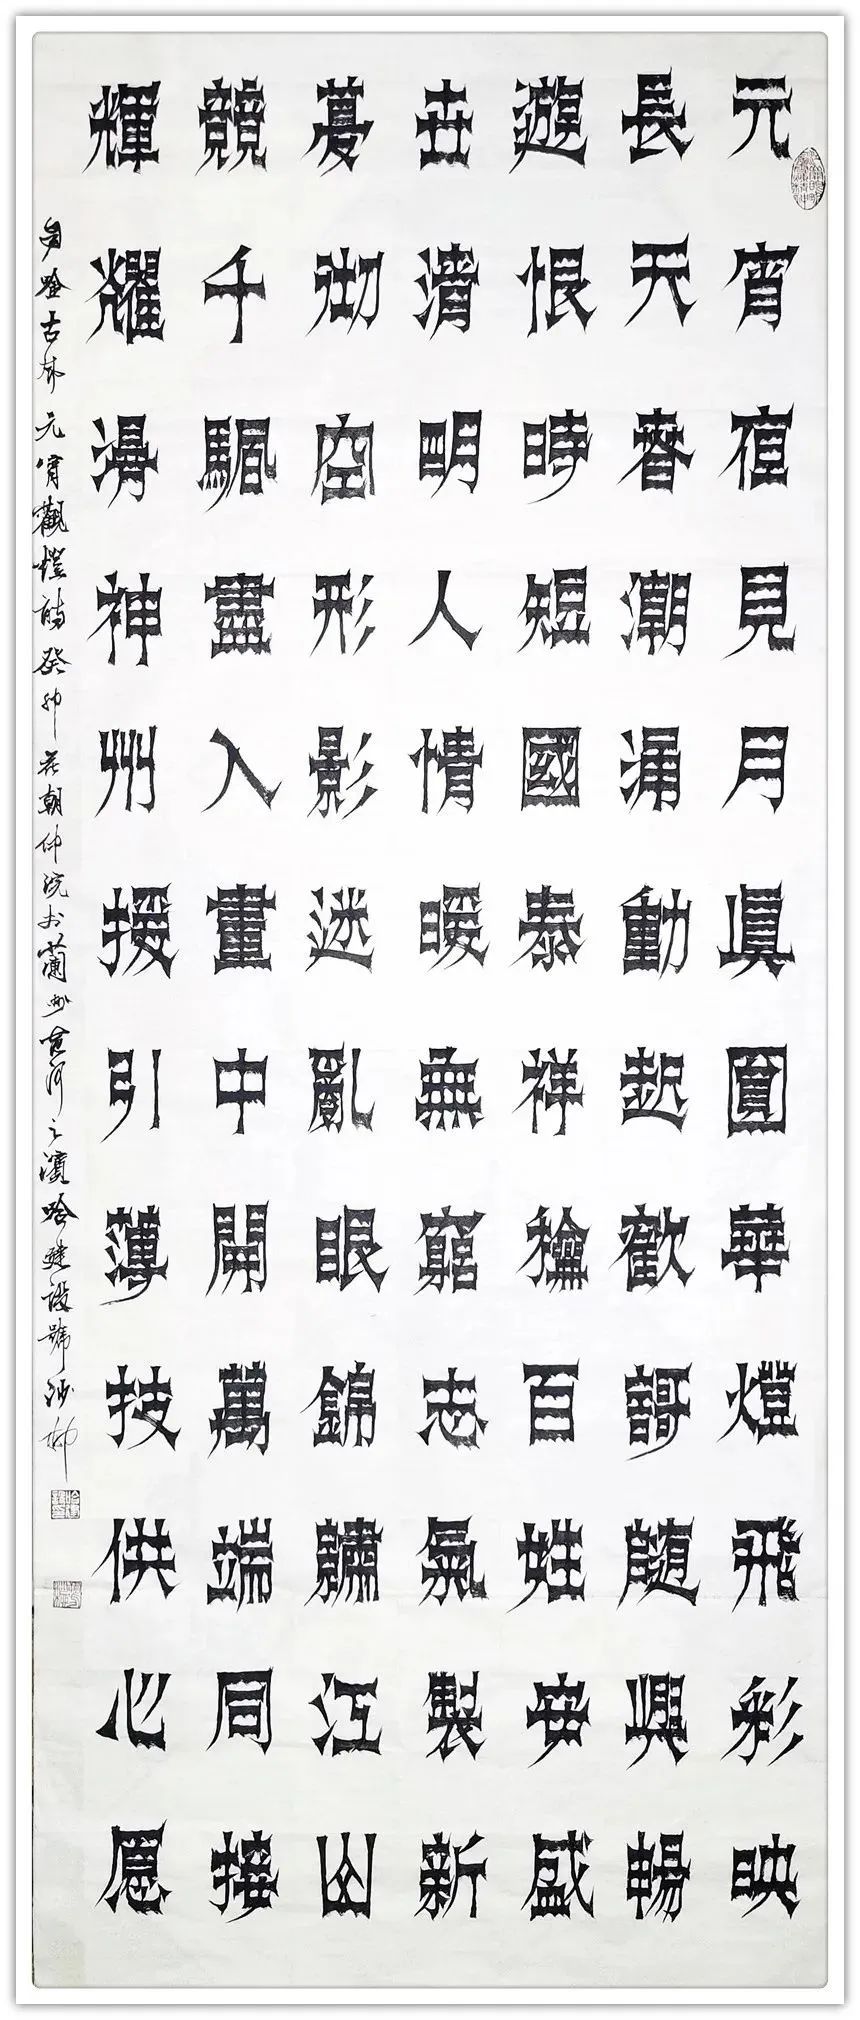 元宵值見月眞圓華燈飛彩映
長天春潮涌動起歡謌隨興暢
遊恨時短國泰祥稔百姓安盛
世清明人情暖無窮志氣製新
夢彻空形影迷亂眼錦繡江山
競千騧盡入畫中開萬端同接
輝耀神州援引薄技供心愿
自吟古体元宵觀燈詩癸卯花朝仲浣於蘭州黃河之濱哈建設號沙柳